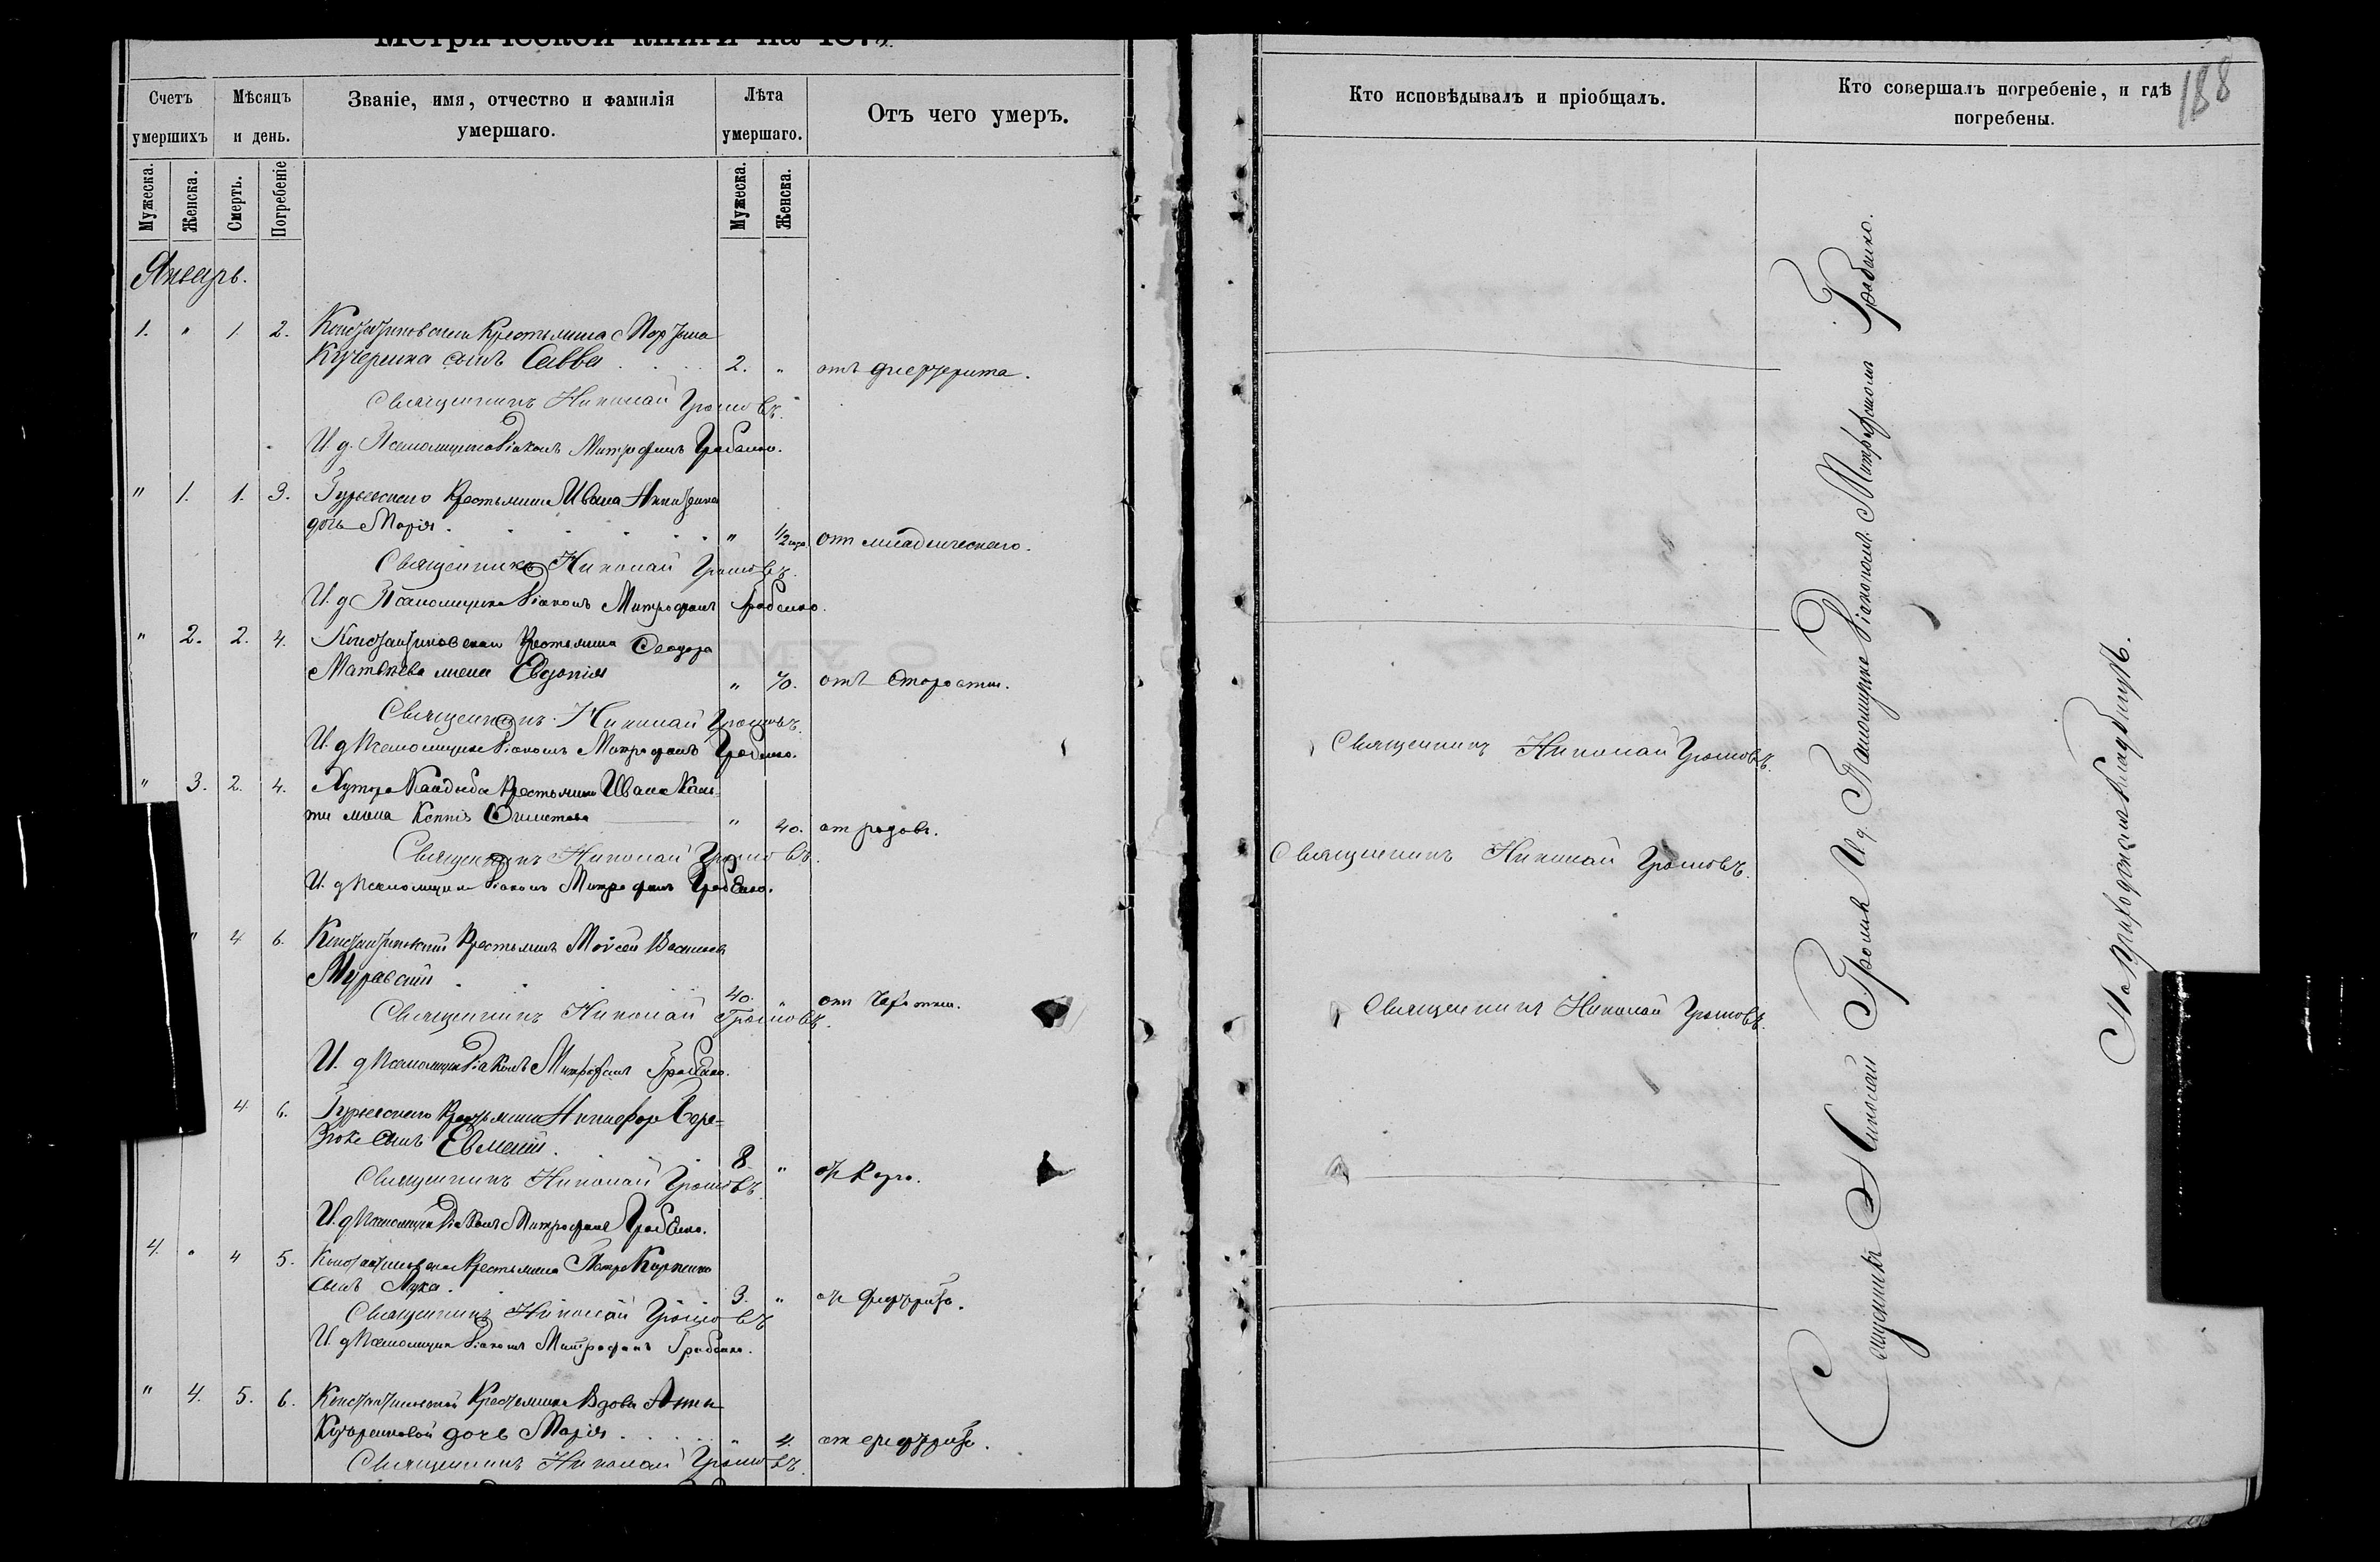 Метрической книги на 187
Счетъ умершихъ
Мѣсяцъ и день.
Званіе, имя, отчество и фамилія умершаго.
Лѣта умершаго.
Отъ чего умеръ.
Кто исповѣдывалъ и пріобщалъ.
Кто совершалъ погребеніе, и гдѣ погребены.
188
Мужеска.
Женска.
Смерть.
Погребеніе
Мужеска.
Женска.
Январь.
1. " 1 2. Константиновскаго Крестьянина
Кучеренка сынъ Савва 2. " отъ дифтерита.
Священникъ Николай Громовъ.
И. д. Псаломщика Діаконъ Митрофанъ Грабенко.
" 1. 1. 3. Гурьевскаго Крестьянина Ивана Никитенка
дочь Марія. " 1/2 года отъ младенческаго.
Священникъ Николай Громовъ.
И. д. Псаломщика Діаконъ Митрофанъ Грабенко.
" 2. 2. 4. Константиновскаго Крестьянина Феодора
Матвѣева жена Евдокія " 70. отъ старости.
Священникъ Николай Громовъ.
И. д. Псаломщика Діаконъ Митрофанъ Грабенко.
Священникъ Николай Громовъ.
" 3. 2. 4. Хутора Крестьянина Ивана
жена " 40. отъ родовъ.
Священникъ Николай Громовъ.
И. д. Псаломщика Діаконъ Митрофанъ Грабенко.
Священникъ Николай Громовъ.
" 4 6. Константиновскій Крестьянинъ Моисей Васильевъ
Муравскій 40. " отъ чахотки.
Священникъ Николай Громовъ.
И. д. Псаломщика Діаконъ Митрофанъ Грабенко.
Священникъ Николай Громовъ.
4 6. Гурьевскаго Крестьянина Никифора
сынъ Евменій. 8 "
Священникъ Николай Громовъ.
И. д. Псаломщика Діаконъ Митрофанъ Грабенко.
4. " 4 5. Константиновскаго Крестьянина Петра Карпенка
сынъ Лука. 3. " отъ дифтерита.
Священникъ Николай Громовъ
И. д. Псаломщика Діаконъ Митрофанъ Грабенко.
" 4. 5. 6. Константиновской Крестьянки Вдовы Анны
Кучеренковой дочь Марія " 4. отъ дифтерита.
Священникъ Николай Громовъ.
Священникъ Николай Громовъ И. д. Псаломщика Діакономъ Митрофаномъ Грабенко.
На приходскомъ кладбищѣ.